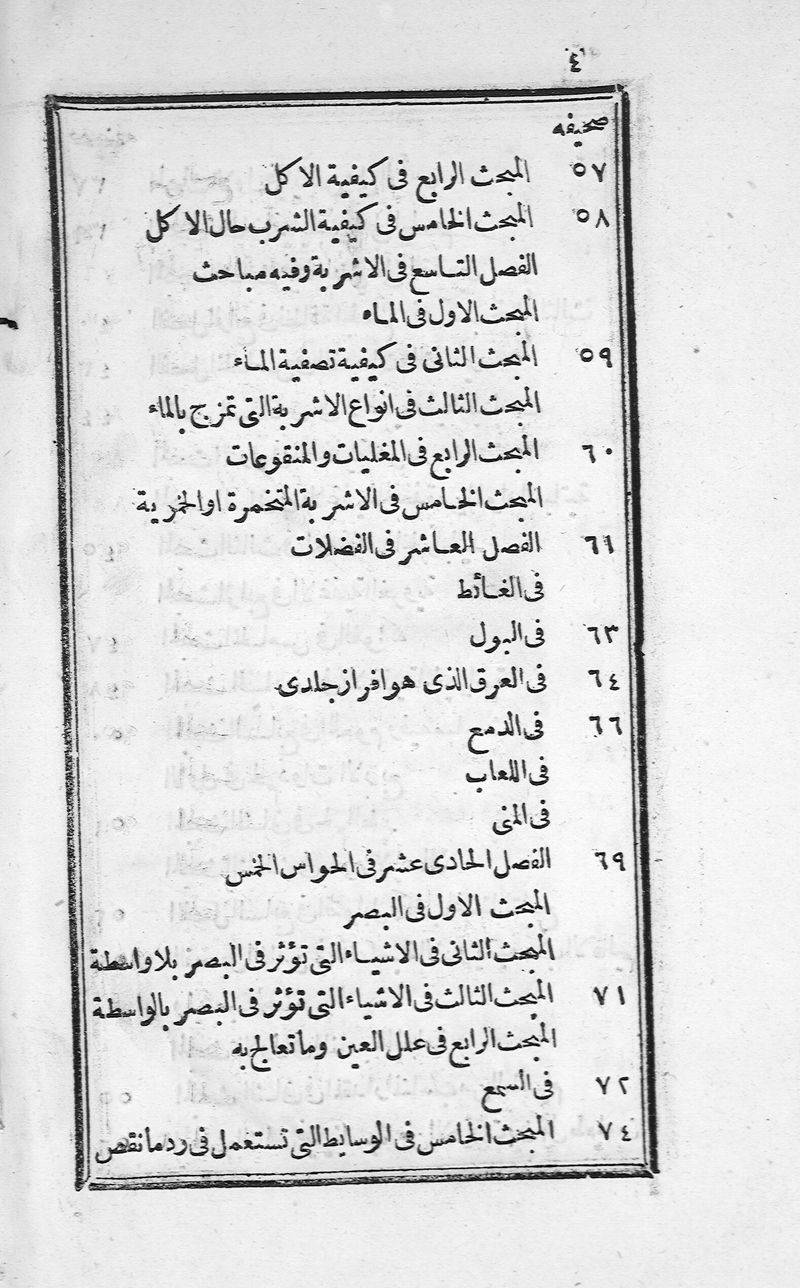 ٤
صحيفه
٥٧ المبحث الرابع فى كيفية الاكل
٥٨ المبحث الخامس فى كيفية الشرب حال الاكل
الفصل التاسع فى الاشربة وفيه مباحث
المبحث الاول فى الماء
٥٩ المبحث الثانى فى كيفية تصفية الماء
المبحث الثالث فى انواع الاشربة التى تمزج بالماء
٦٠ المبحث الرابع فى المغليات والمنقوعات
المبحث الخامس فى الاشربة المتخمرة او الخمرية
٦١ الفصل العاشر فى الفضلات
فى الغائط
٦٣ فى البول
٦٤ فى العرق الذى هو افراز جلدى
٦٦ فى الدمع
فى اللعاب
فى المنى
٦٩ الفصل الحادى عشر فى الحواس الخمس
المبحث الاول فى البصر
المبحث الثانى فى الاشياء التى تؤثر فى البصر بلا واسطة
٧١ المبحث الثالث فى الاشياء التى تؤثر فى البصر بالواسطة
المبحث الرابع فى علل العين وما تعالج به
٧٢ فى السمع
٧٤ المبحث الخامس فى الوسايط التى تستعمل فى رد ما نقص